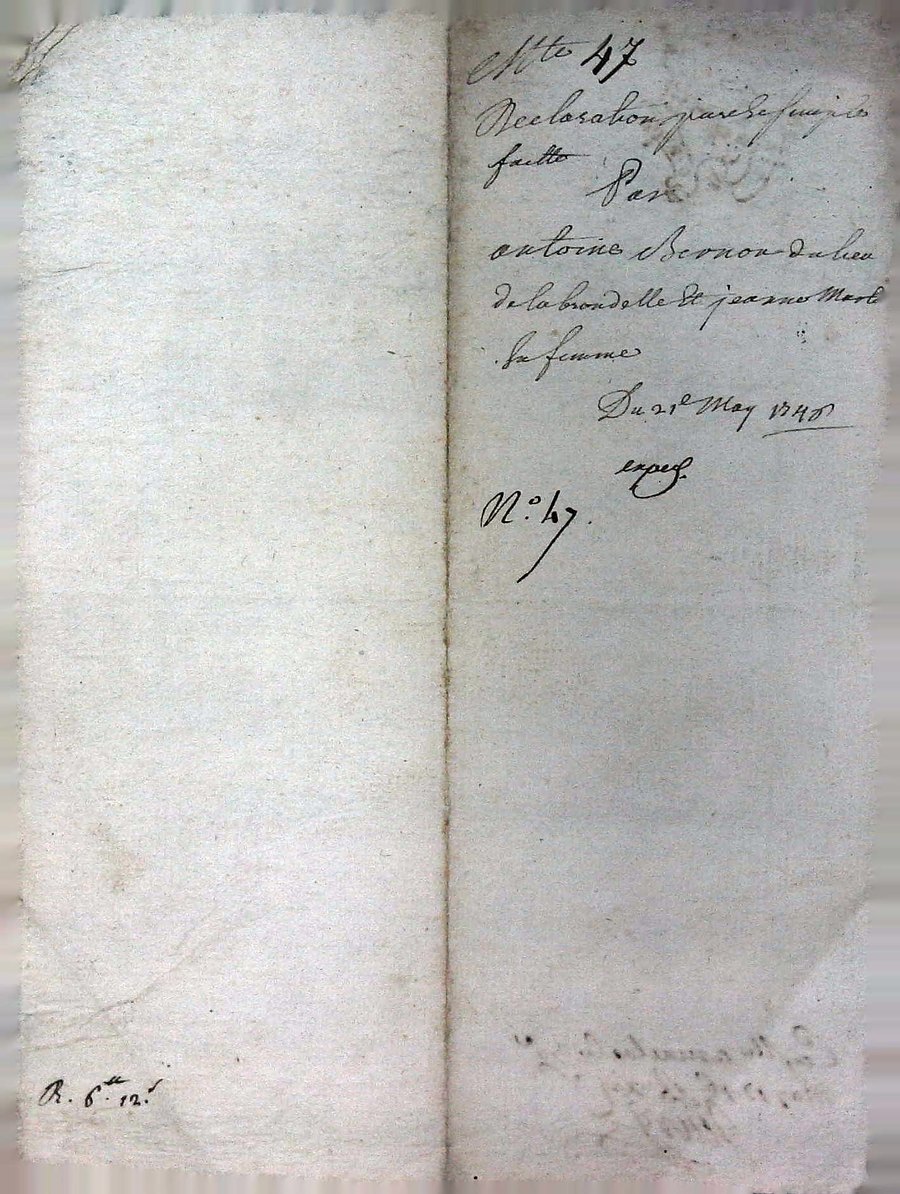 Cotte 47
Declaration pure & simple
faitte
Par
antoine Bernon du lieu
de la brondelle Et jeanne
sa femme
Du 21e May 1746
exped.
N.o 47.
R. 6.tt 12.s